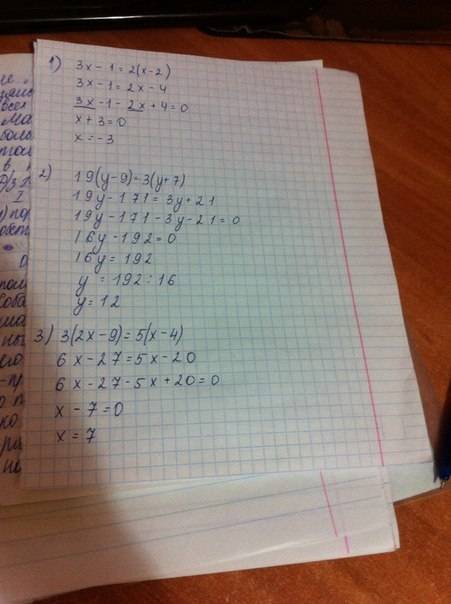 1) 3x - 1 = 2(x - 2)
3x - 1 = 2x - 4
3x - 1 - 2x + 4 = 0
x + 3 = 0
x = -3
2) 19(y - 9) = 3(y + 7)
19y - 171 = 3y + 21
19y - 171 - 3y - 21 = 0
16y - 192 = 0
16y = 192
y = 192 : 16
y = 12
3) 3(2x - 9) = 5(x - 4)
6x - 27 = 5x - 20
6x - 27 - 5x + 20 = 0
x - 7 = 0
x = 7